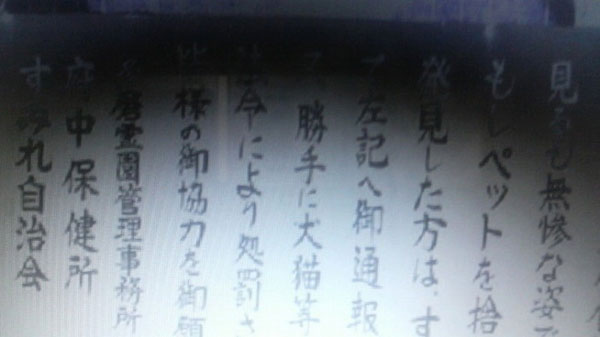 見るも無惨な姿で
もしペットを
発見した方は、す
左記へ御通報
勝手に犬猫等
法令により処罰さ
皆様の御協力を御願
多磨霊園管理事務所
府中保健所
すみれ自治会